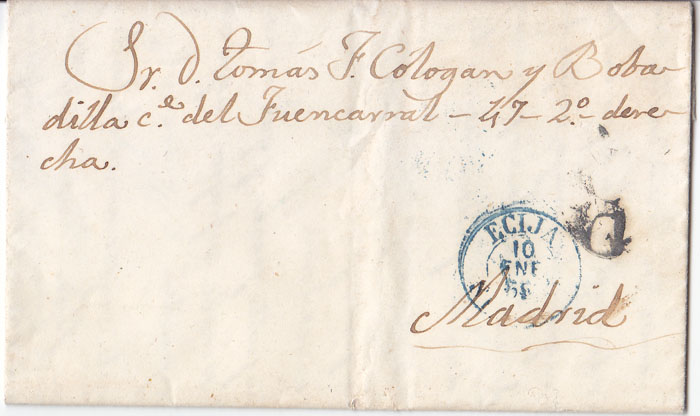 Sr. D. Tomás F. Cólogan y Boba
dilla c.e del Fuencarral - 47 - 2.o - dere
cha.
ECIJA
10
ENE
Madrid